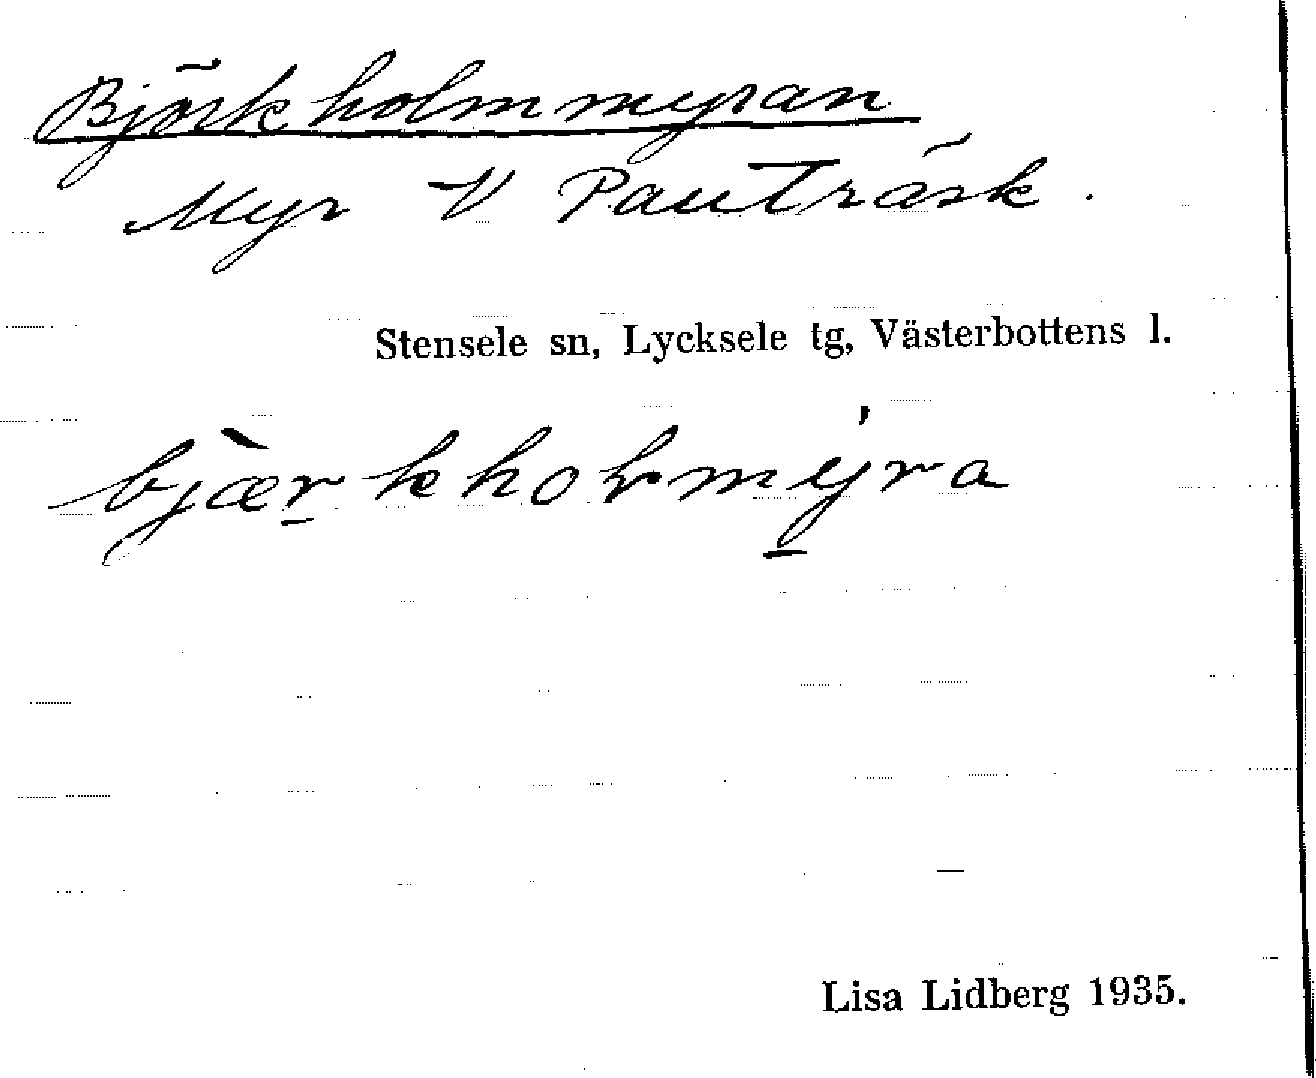 Björkholmmyran
Myr V Pauträsk.
Stensele sn, Lycksele tg, Västerbottens l.
bjæ̀r̠kholmý̠ra
Lisa Lidberg 1935.